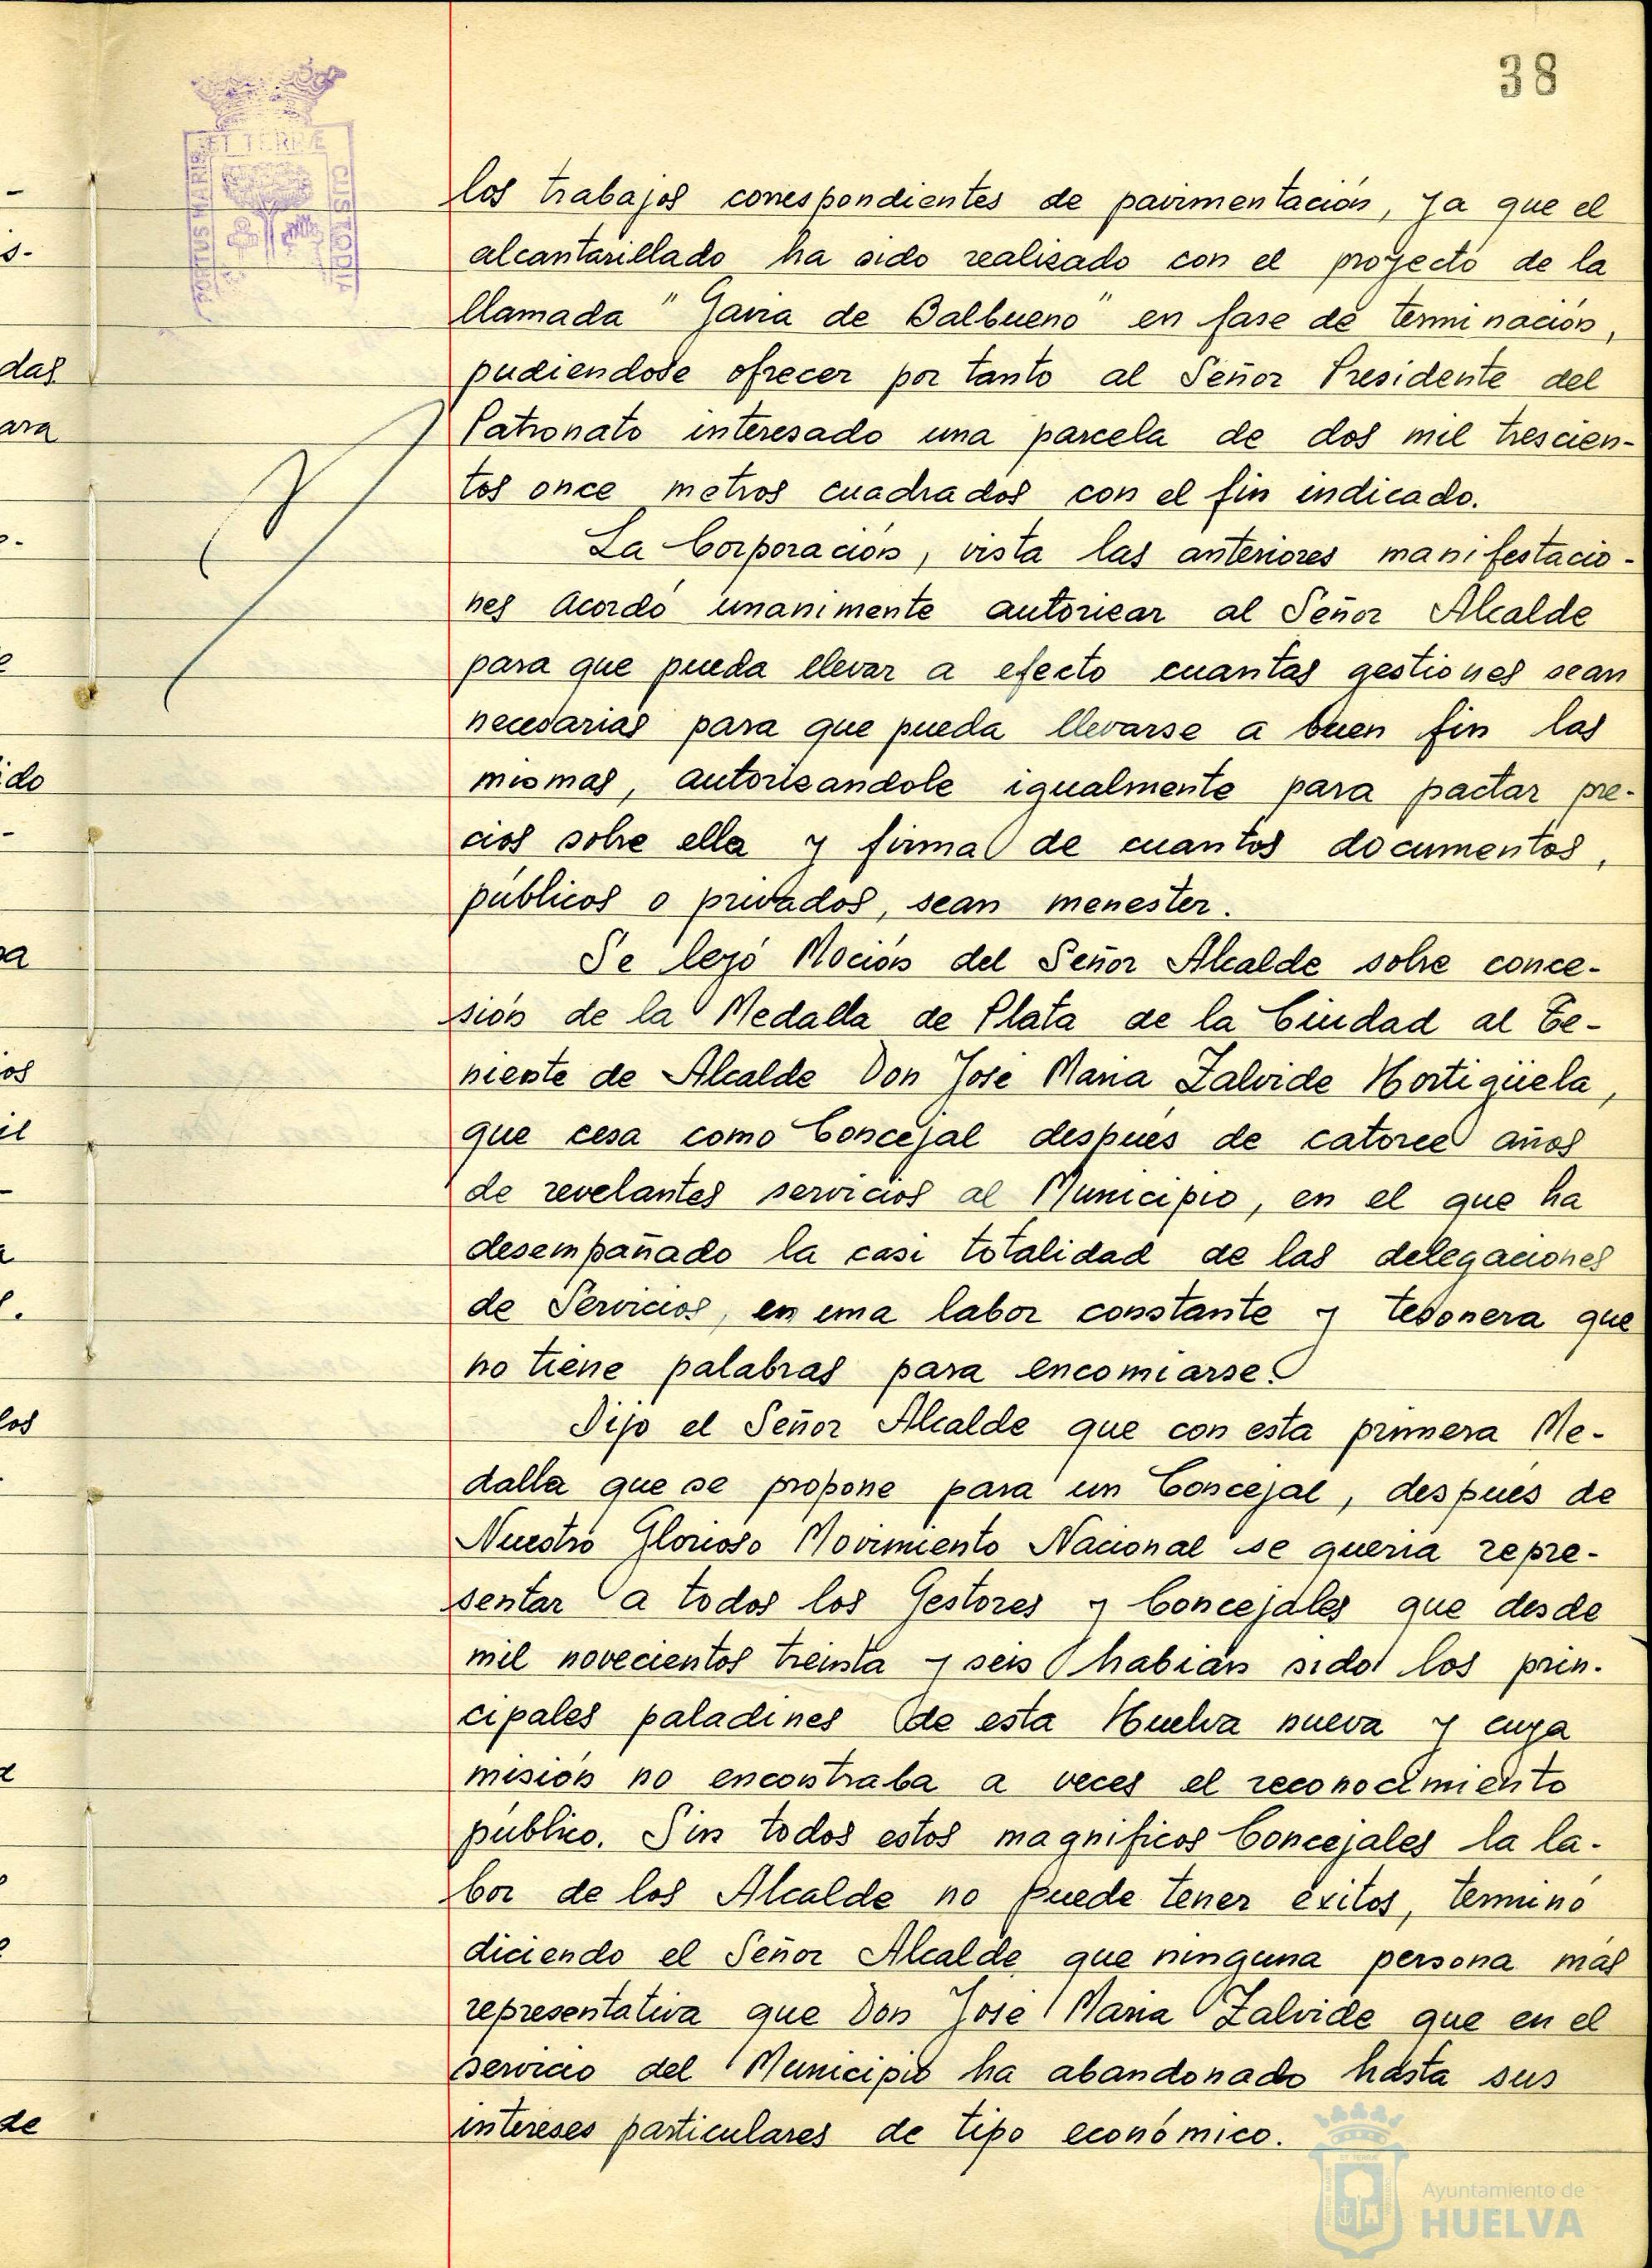 38
ET TERRÆ
PORTUS MARIS
CUSTODIA
los trabajos correspondientes de pavimentación, ya que el
alcantarillado ha sido realizado con el proyecto de la
llamada "Gavia de Balbueno" en fase de terminación,
pudiendose ofrecer por tanto al Señor Presidente del
Patronato interesado una parcela de dos mil trescien-
tos once metros cuadrados con el fin indicado.
La Corporación, vista las anteriores manifestacio-
nes acordó unanimente autorizar al Señor Alcalde
para que pueda llevar a efecto cuantas gestiones sean
necesarias para que pueda llevarse a buen fin las
mismas, autorizandole igualmente para pactar pre-
cios sobre ella y firma de cuantos documentos,
públicos o privados, sean menester.
Se leyó Moción del Señor Alcalde sobre conce-
sión de la Medalla de Plata de la Ciudad al Te-
niente de Alcalde Don José Maria Zalvide Hortigüela,
que cesa como Concejal despues de catorce años
de revelantes servicios al Municipio, en el que ha
desempañado la casi totalidad de las delegaciones
de Servicios, en una labor constante y tesonera que
no tiene palabras para encomiarse.
Dijo el Señor Alcalde que con esta primera Me-
dalla que se propone para un Concejal, despues de
Nuestro Glorioso Movimiento Nacional se queria repre-
sentar a todos los Gestores y Concejales que desde
mil novecientos treinta y seis habian sido los prin-
cipales paladines de esta Huelva nueva y cuya
misión no encontraba a veces el reconocimiento
público. Sin todos estos magnificos Concejales la la-
bor de los Alcalde no puede tener éxitos, terminó
diciendo el Señor Alcalde que ninguna persona más
representativa que Don José Maria Zalvide que en el
servicio del Municipio ha abandonado hasta sus
intereses particulares de tipo económico.
das
ara
ido
os
il
los
de
Ayuntamiento de
HUELVA